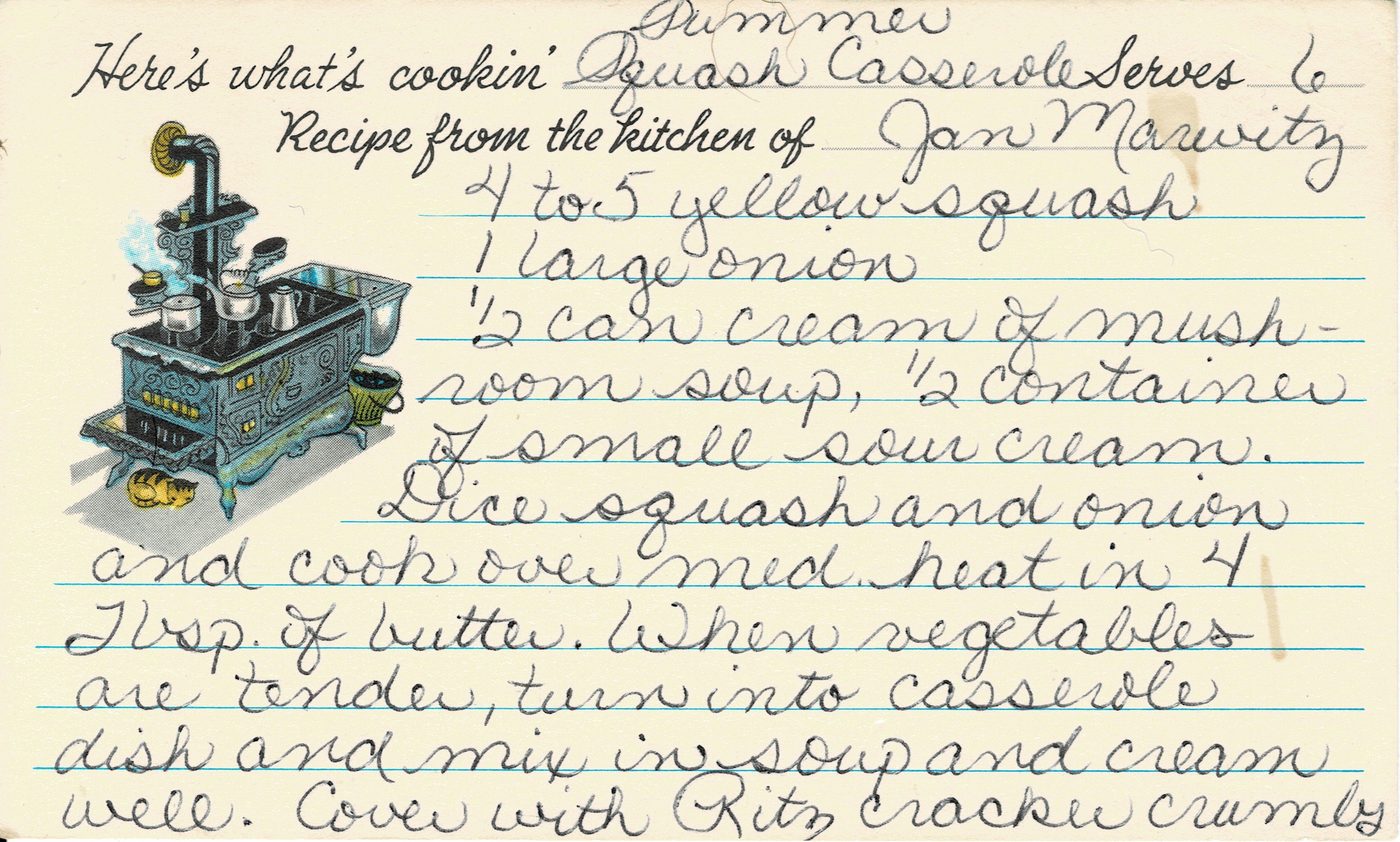 Summer
Here's what's cookin' Squash Casserole Serves 6
Recipe from the kitchen of Jan Marwitz
4 to 5 yellow squash
1 large onion
1/2 can cream of mush-
room soup, 1/2 container
of small sour cream.
Dice squash and onion
and cook over med. heat in 4
Tbsp. of butter. When vegetables
are tender, turn into casserole
dish and mix in soup and cream
well. Cover with Ritz cracker crumbs